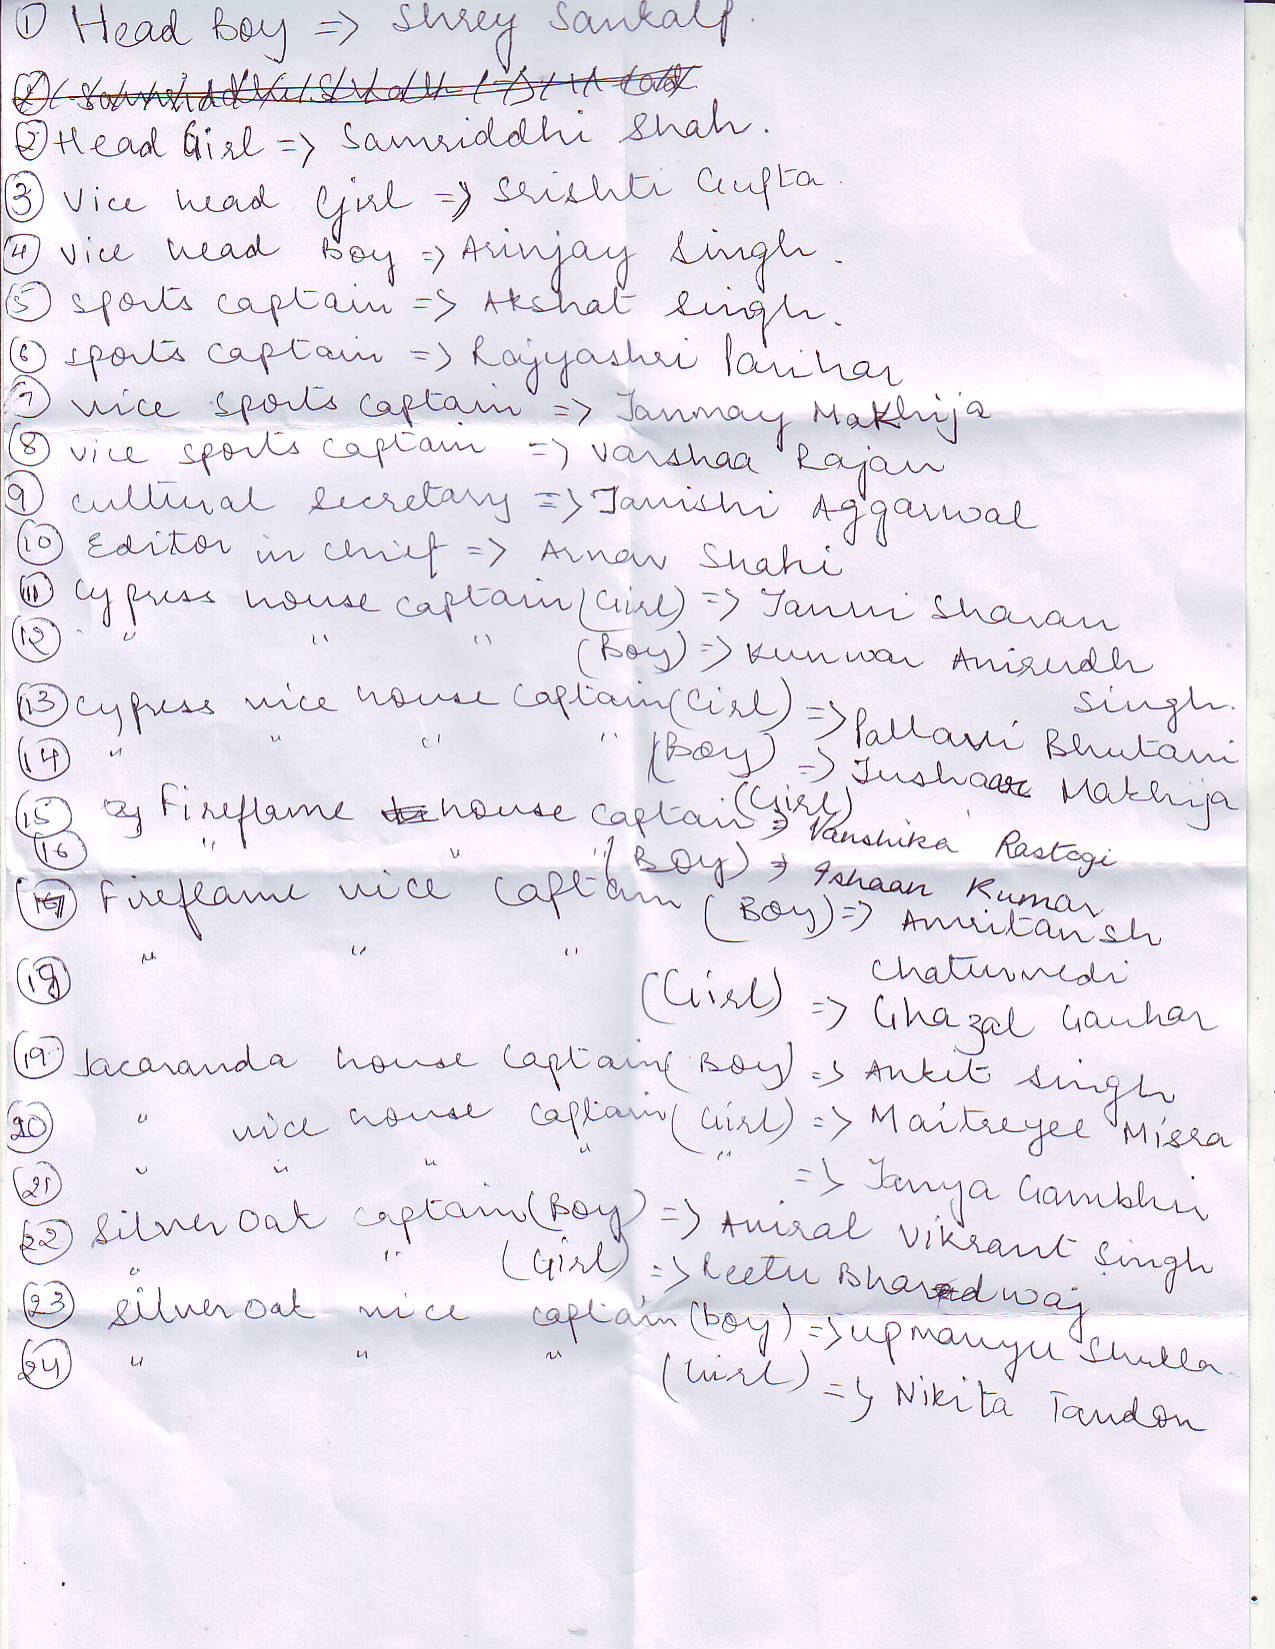 ① Head Boy => Shrey Sankalp.
② Head Girl => Samriddhi Shah.
③ Vice head Girl => Srishti Gupta.
④ Vice head Boy => Arinjay Singh.
⑤ Sports captain => Akshat Singh.
⑥ Sports captain => Rajyashri Parihar
⑦ vice sports captain => Tanmay Makhija
⑧ vice sports captain => Varshaa Rajan
⑨ cultural secretary => Tanishi Aggarwal
⑩ Editor in chief => Arnav Shahi
⑪ Cypress house captain (Girl) => Tanvi Sharan
⑫ " " " (Boy) => Kunwar Anirudh
Singh.
⑬ Cypress vice house captain (Girl) => Pallavi Bhutani
⑭ " " " " (Boy) => Tushaar Makhija
⑮ Fireflame house captain (Girl) => Vanshika Rastogi
⑯ " " " (Boy) => Ishaan Kumar
⑰ Fireflame vice captain (Boy) => Amritansh
Chaturvedi
⑱ " " " (Girl) => Ghazal Gauhar
⑲ Jacaranda house captain (Boy) => Ankit Singh
⑳ " vice house captain (Girl) => Maitreyee Misra
㉑ " " " " " => Tanya Gambhir
㉒ Silver Oak captain (Boy) => Aviral Vikrant Singh
" " (Girl) => Reetu Bharadwaj
㉓ Silver Oak vice captain (Boy) => Upmanyu Shukla
㉔ " " " (Girl) => Nikita Tandon